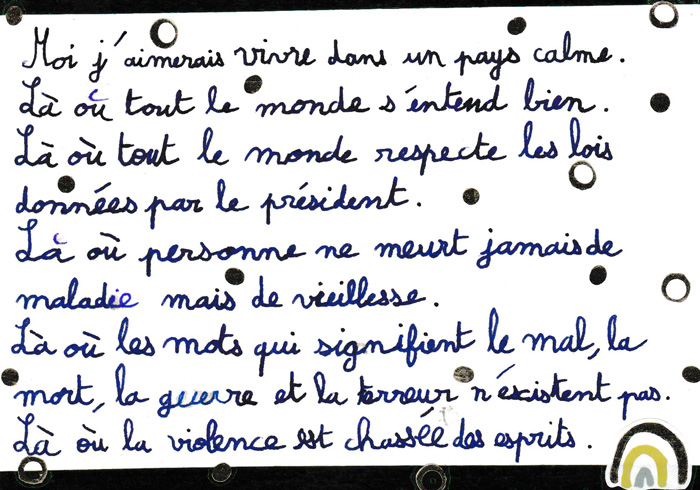 Moi j'aimerais vivre dans un pays calme.
Là où tout le monde s'entend bien.
Là où tout le monde respecte les lois
données par le président.
Là où personne ne meurt jamais de
maladie mais de vieillesse.
Là où les mots qui signifient le mal, la
mort, la guerre et la terreur n'éxistent pas.
Là où la violence est chassée des esprits.